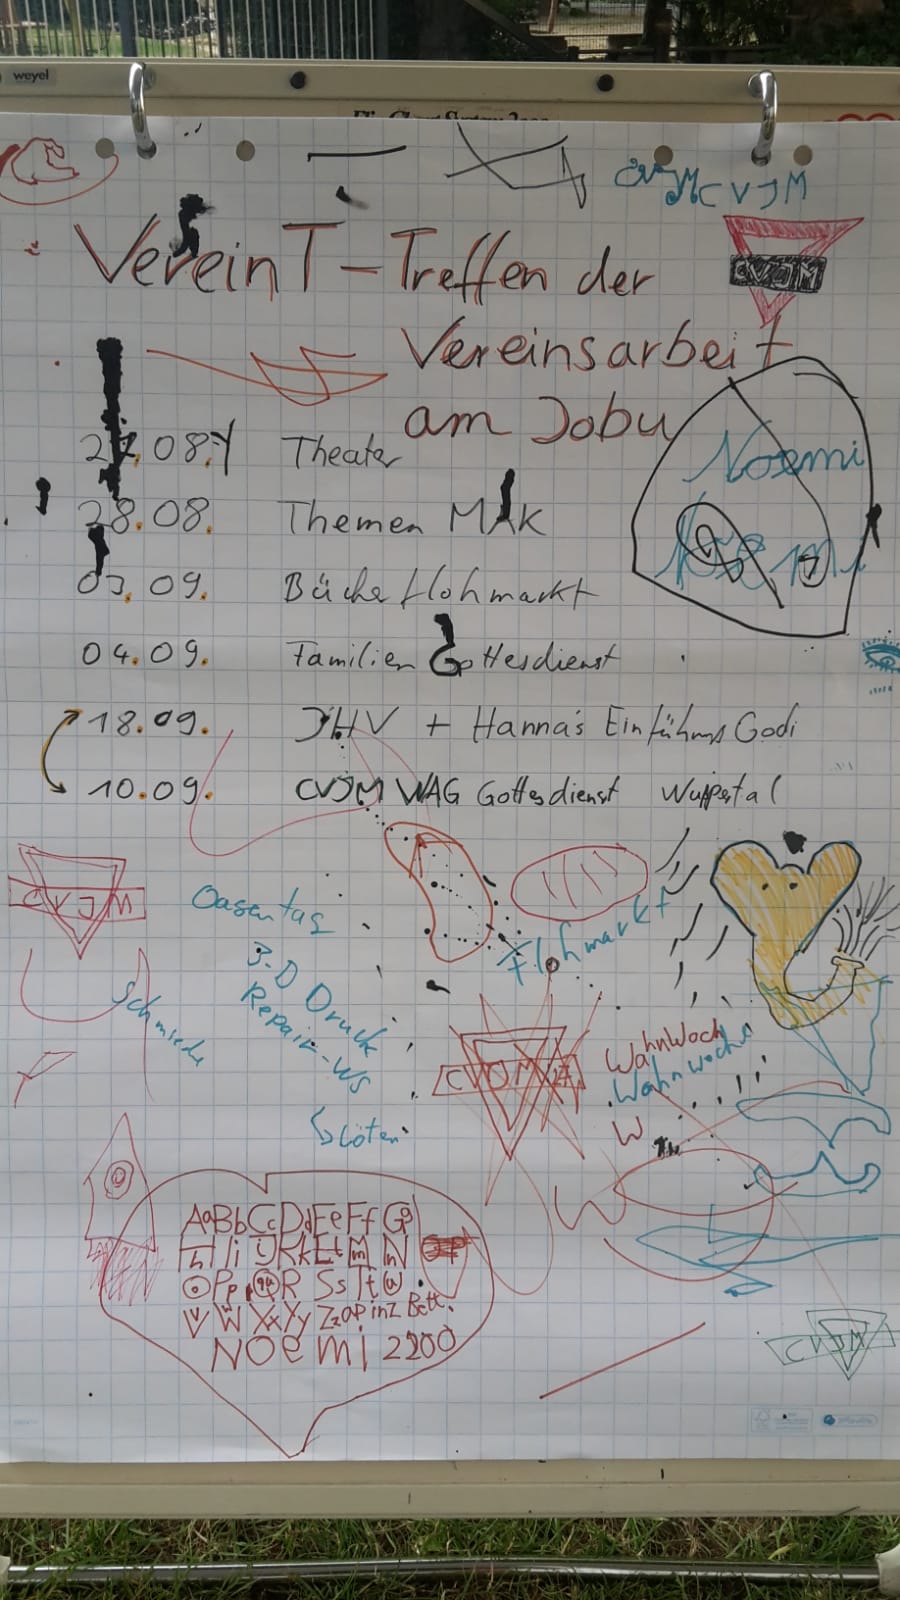 weyel
CVJM
VereinT - Treffen der
CVJM
Vereinsarbeit
am Jobu
27.08. Theater
Noemi
28.08. Themen MAK
03.09. Bücherflohmarkt
04.09. Familien Gottesdienst
18.09. JHV + Hanna's Einführungs Godi
10.09. CVJM WAG Gottesdienst Wuppertal
CVJM
Oasentag
Flohmarkt
3-D Druck
Schmiede
Repair-WS
CVJM
WahnWoch
Wahnwoche
W
↳ Löten
AaBbCcDdEeFfGg
Pp R SsTt
VWXxYyZz ap inz Bett.
NOemi 2200
CVJM